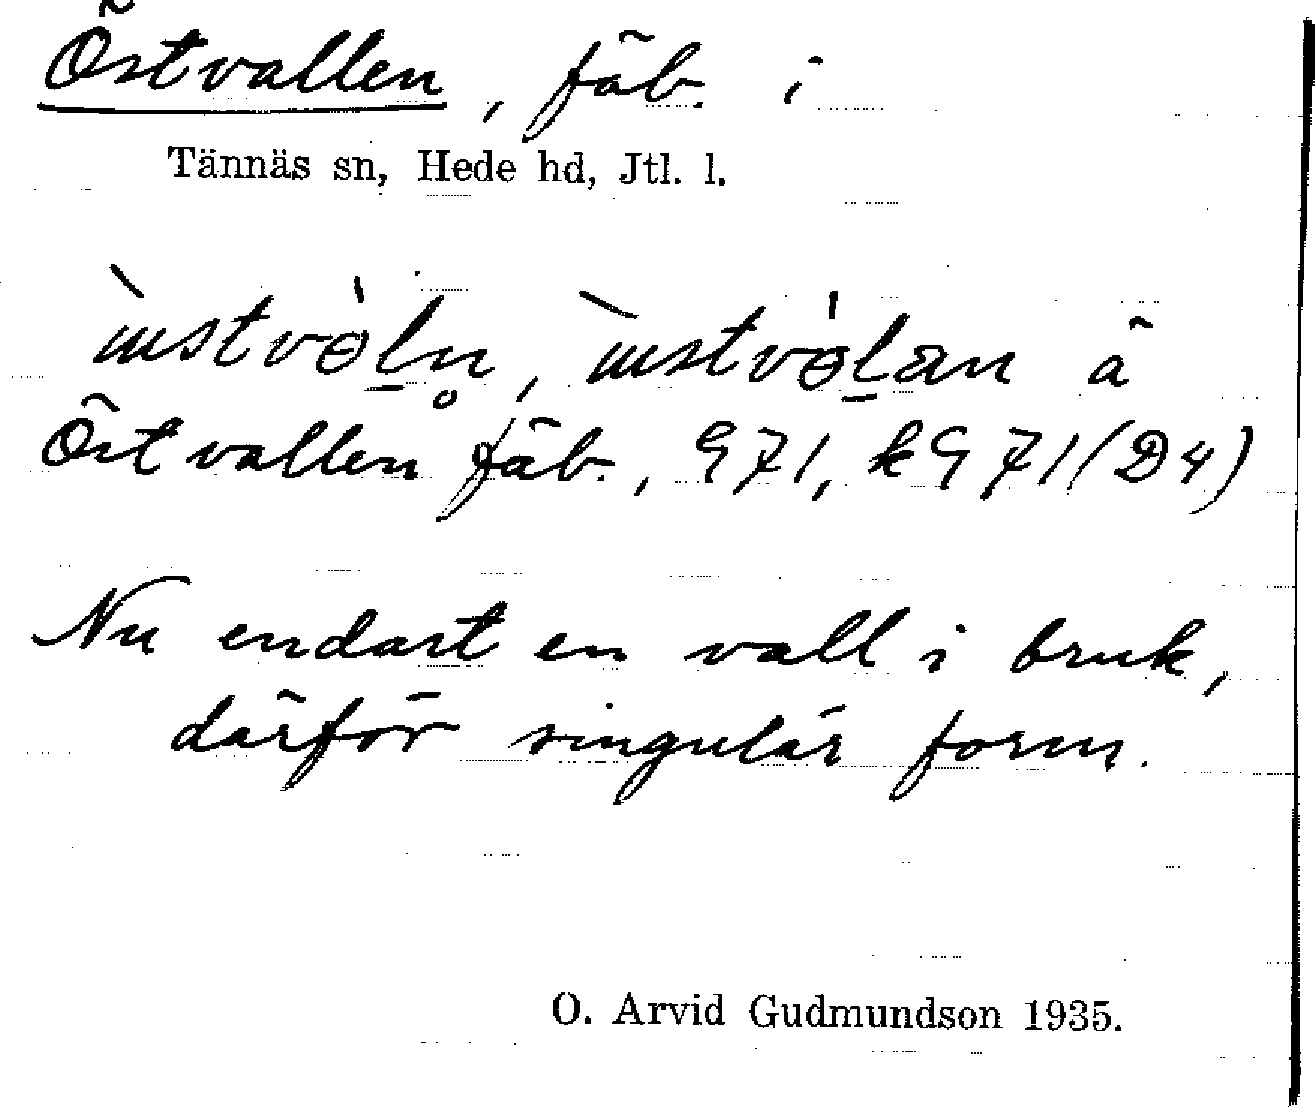 Östvallen, fäb. i
Tännäs sn, Hede hd, Jtl. l.
å
Östvallen fäb., G71, kG71(D4)
Nu endast en vall i bruk,
därför singulär form.
O. Arvid Gudmundson 1935.